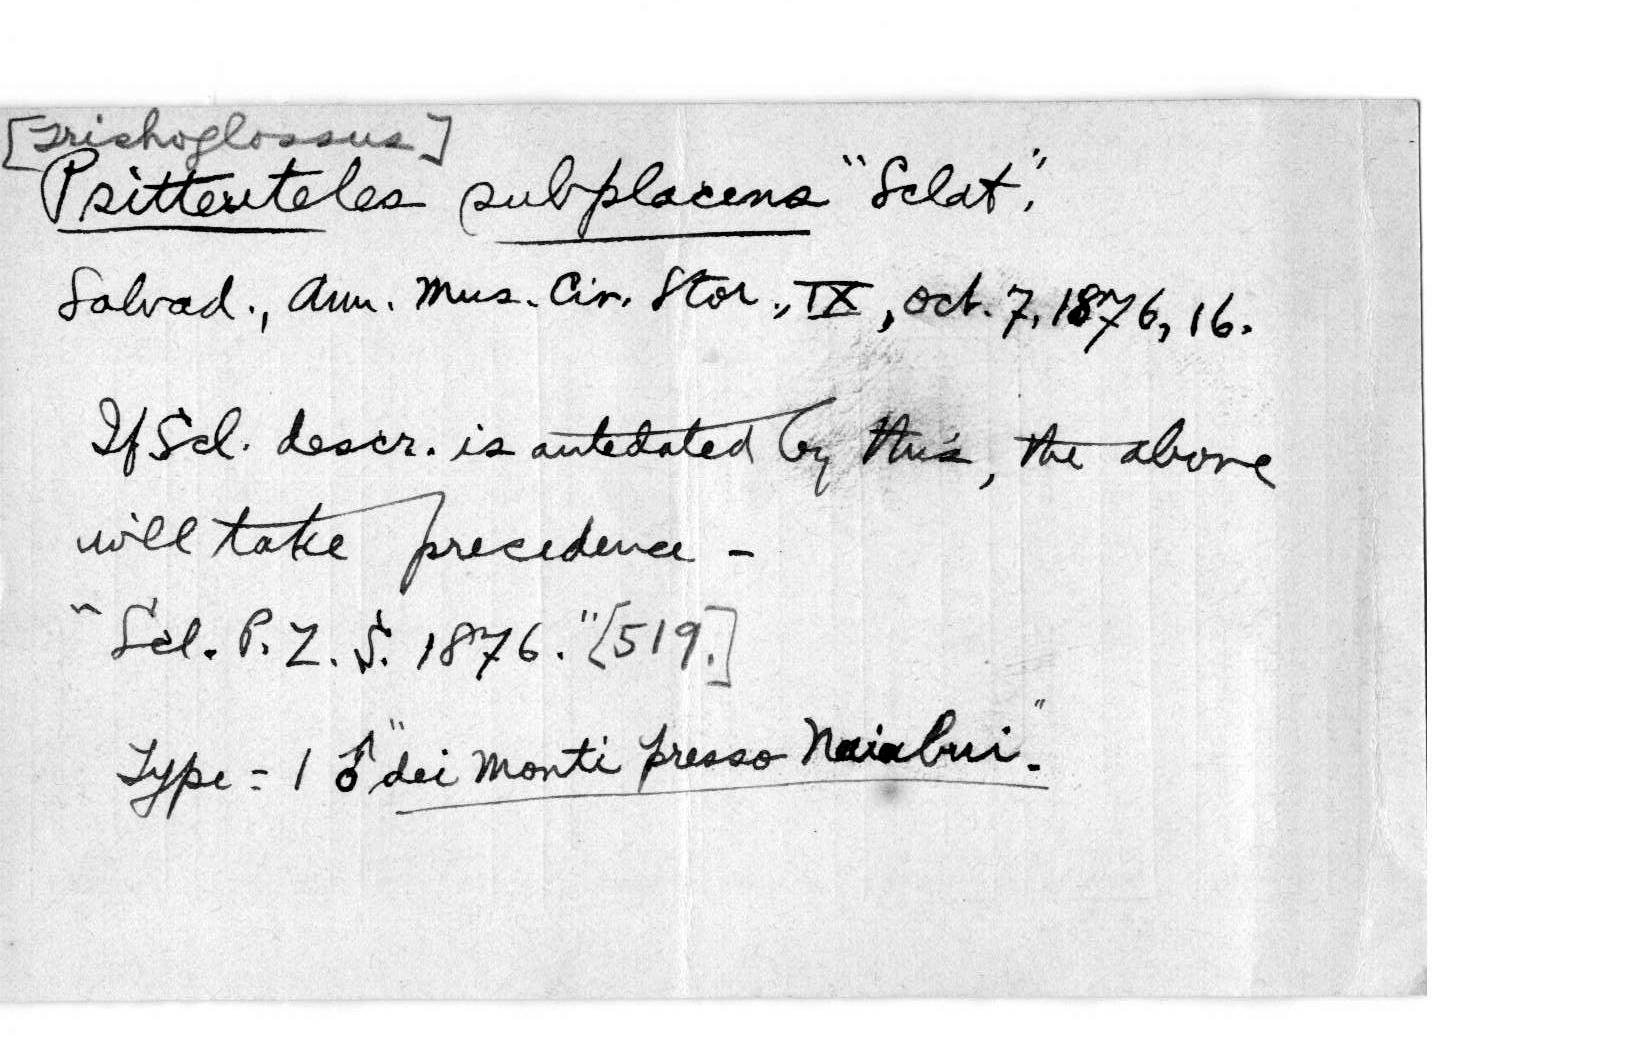 [Trichoglossus]
Psitteuteles subplacens "Sclat."
Salvad., Ann. Mus. Civ. Stor., IX, Oct. 7, 1876, 16.
If Scl. descr. is antedated by this, the above
will take precedence -
"Scl. P. Z. S. 1876." [519.]
Type = 1 ♂ "dei monti presso Naiabui."